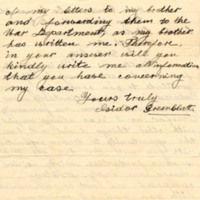 of my letters to my brother
and forwarding them to the
War Department, as my brother
has written me. Therefore
in your answer will you
kindly write me all information
that you have concerning
my case.
Yours truly
Isidor Greenblatt